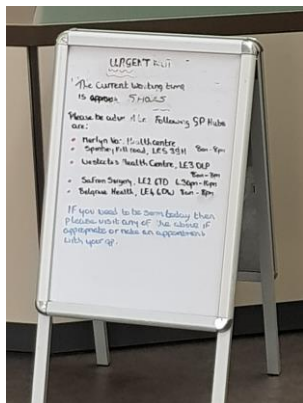 URGENT
The Current Waiting time
is approx 5 HOURS
Please be aware the Following GP Hubs
are:
Merlyn Vaz Healthcentre
Spinney Hill road, LE5 3GH 8am - 8pm
Westcotes Health Centre, LE3 0LP
8am - 8pm
Saffron Surgery, LE2 6TD 6.30pm - 10pm
Belgrave Health, LE4 6DW 8am - 8pm
If you need to be seen today then
please visit any of the above if
appropriate or make an appointment
with your gp.